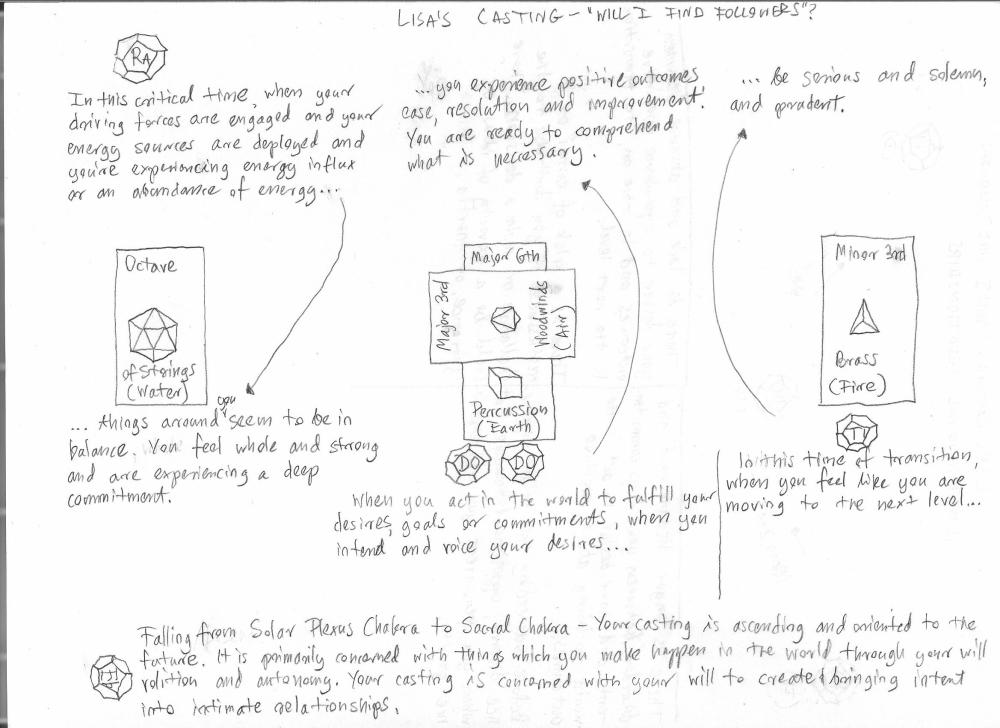 LISA'S CASTING - "WILL I FIND FOLLOWERS"?
RA
In this critical time, when your
driving forces are engaged and your
energy sources are deployed and
you're experiencing energy influx
or an abundance of energy...
...you experience positive outcomes
ease, resolution and improvement.
You are ready to comprehend
what is necessary.
... be serious and solemn,
and prudent.
Octave
of Strings
(Water)
Major 6th
Major 3rd
Woodwinds
(Air)
Percussion
(Earth)
DO
DO
Minor 3rd
Brass
(Fire)
TI
... things around you seem to be in
balance. You feel whole and strong
and are experiencing a deep
commitment.
When you act in the world to fulfill your
desires, goals or commitments, when you
intend and voice your desires...
In this time of transition,
when you feel like you are
moving to the next level...
Falling from Solar Plexus Chakra to Sacral Chakra - Your casting is ascending and oriented to the
future. It is primarily concerned with things which you make happen in the world through your will
volition and autonomy. Your casting is concerned with your will to create & bringing intent
into intimate relationships.